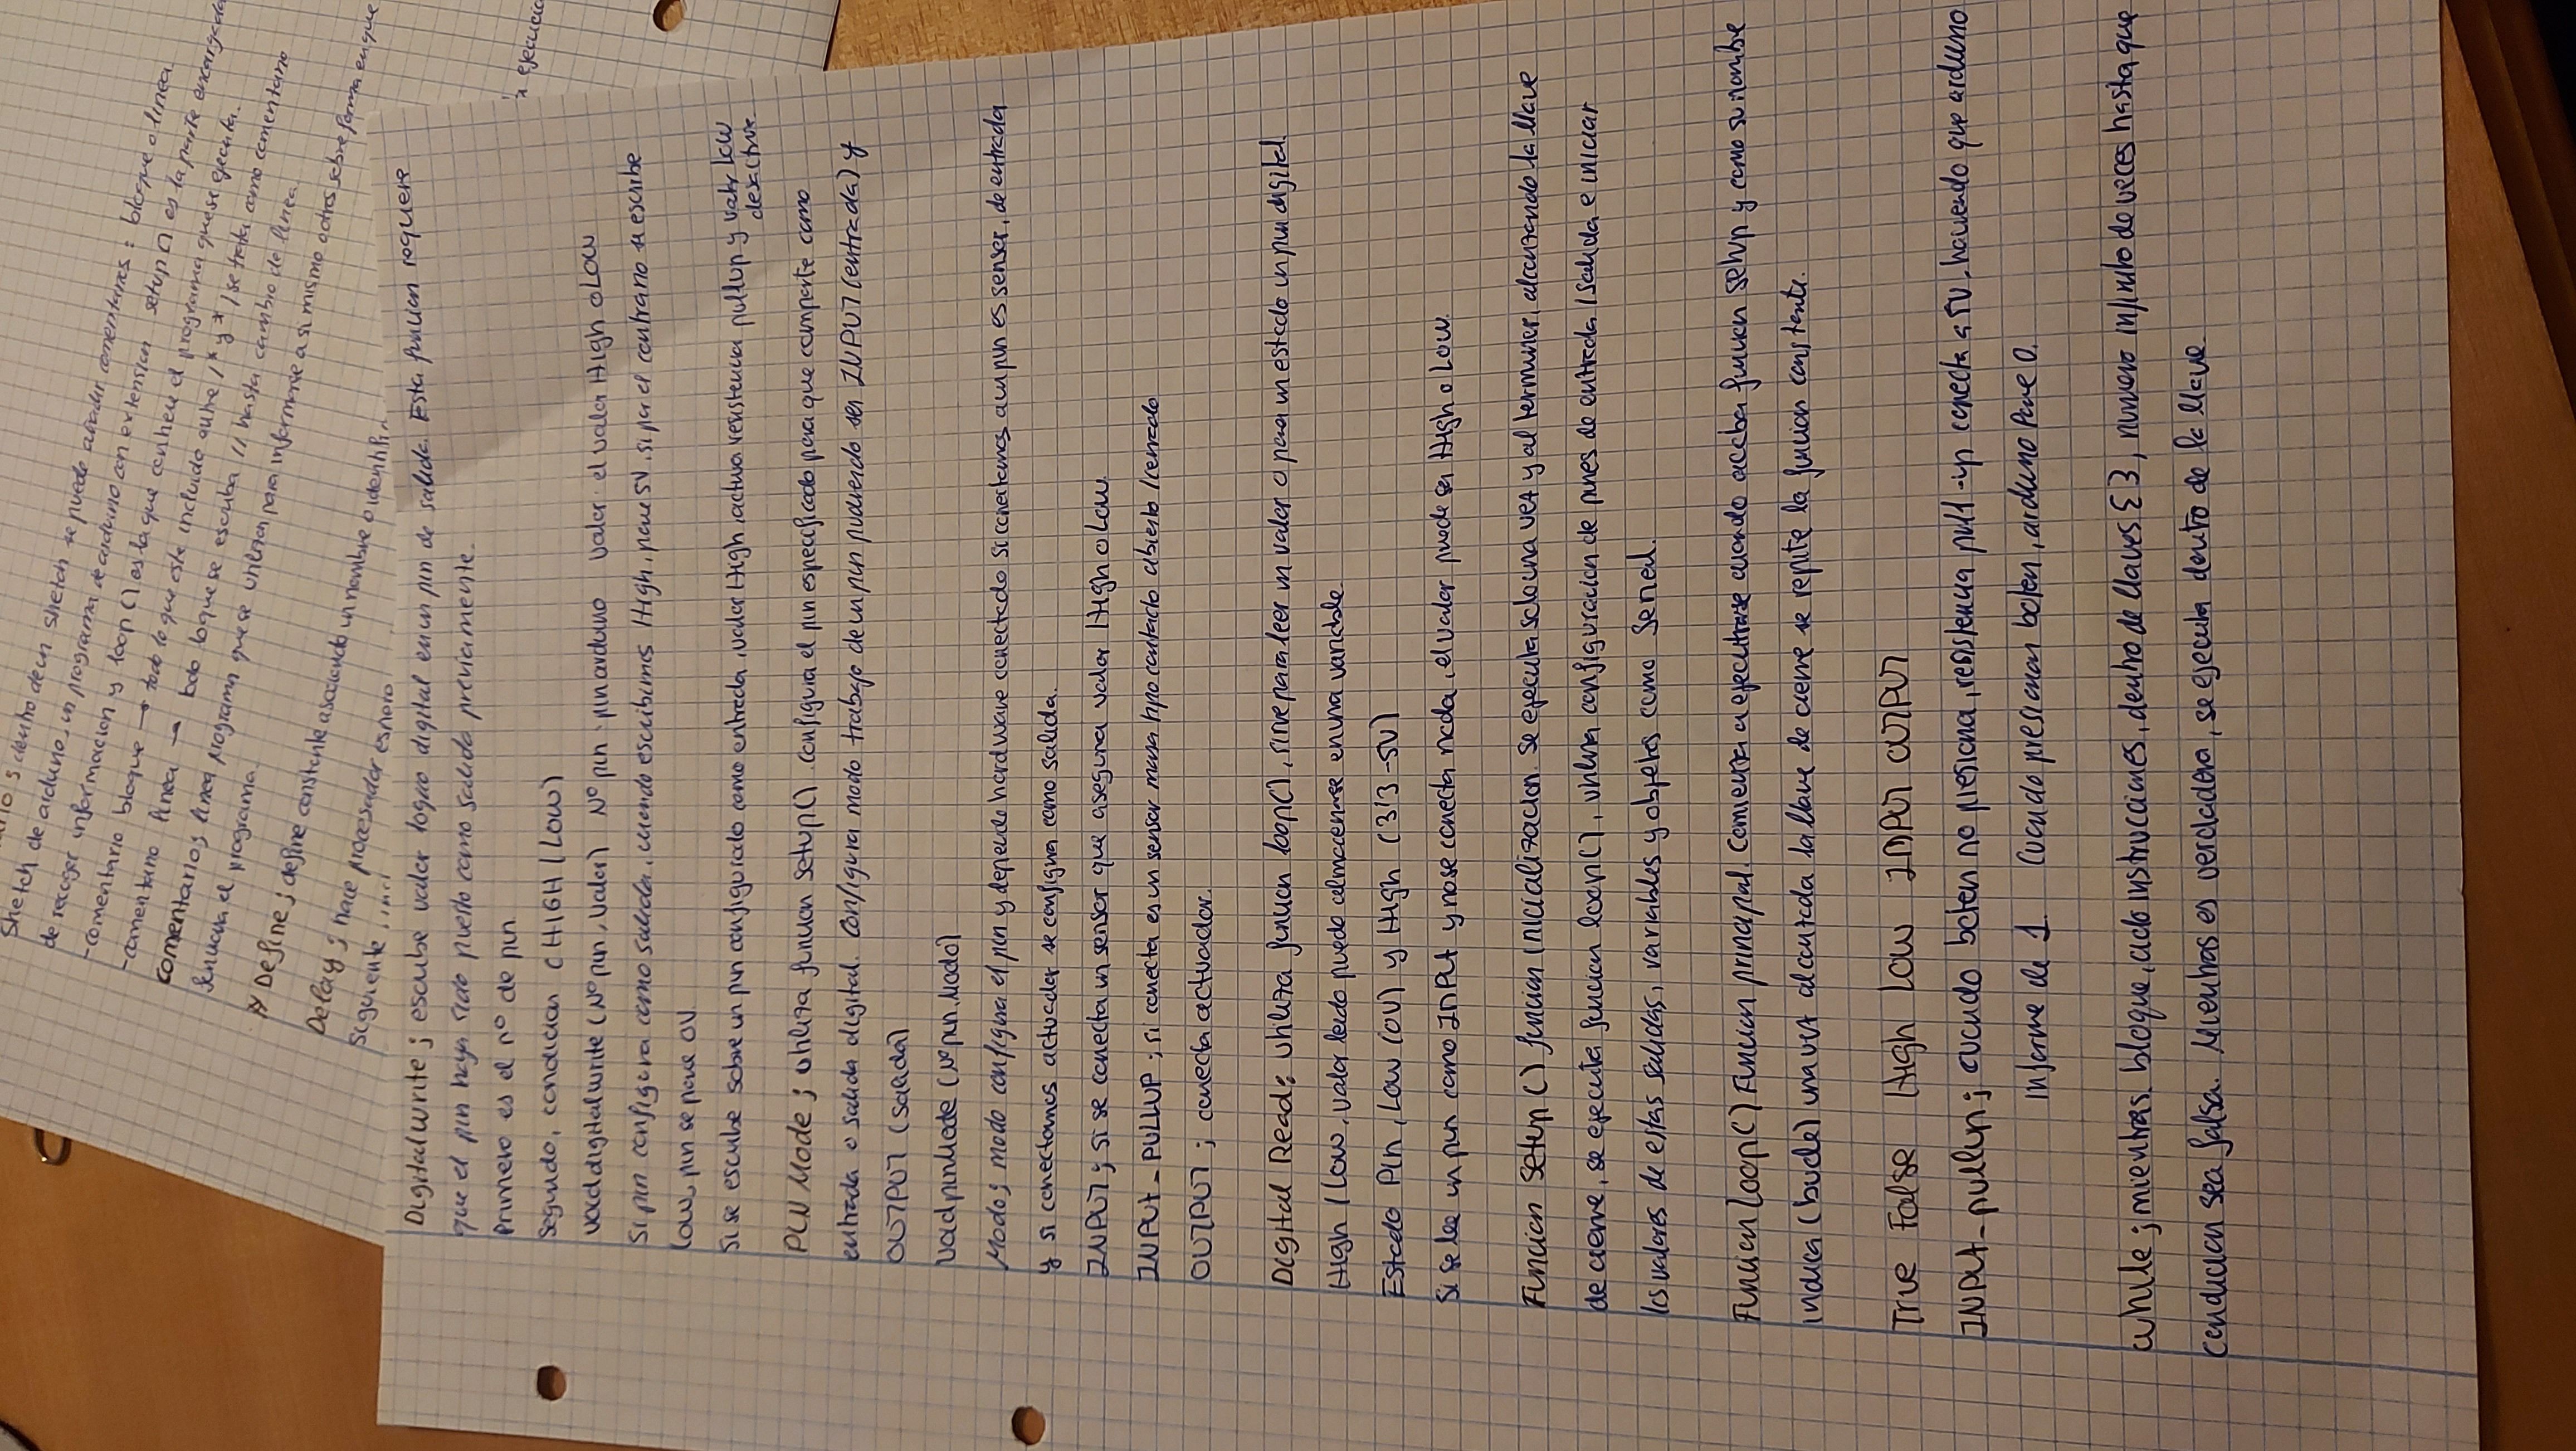 Sketch de arduino, un programa de arduino con extension
setup () es la parte encargada
de recoger informacion y loop () es la que contiene el programa que se ejecuta.
-comentario bloque → todo lo que este incluido entre /* y */ se trata como comentario
-comentario linea → todo lo que se escriba // hasta cambio de linea.
comentarios linea programa que se utilizan para informarse a si mismo o otros sobre forma en que
funciona el programa.
Define ; define constante asociando un nombre o identifi
Delay ; hace procesador espere
Siguiente
ejecucio
Digitalwrite ; escribe valor logico digital en un pin de salida. Esta funcion requiere
que el pin haya sido puesto como salida previamente.
Primero es el nº de pin
Segundo, condicion (HIGH / LOW)
Void digitalwrite (Nº pin, valor) Nº pin : pin arduino valor: el valor High o LOW
Si pin configura como salida, cuando escribimos High, pone 5V, si por el contrario se escribe
Low, pin se pone 0V
Si se escribe sobre un pin configurado como entrada, valor High activa resistencia pullup y valor Low
desactiva
PIN Mode ; utiliza funcion Setup(). Configura el pin especificado para que comporte como
entrada o salida digital. Configura modo trabajo de un pin pudiendo ser INPUT (entrada) y
OUTPUT (salida)
Void pinMode (Nº pin, Modo)
Modo ; modo configura el pin y depende hardware conectado si conectamos a un pin es sensor, de entrada
y si conectamos actuador se configura como salida.
INPUT ; si se conecta un sensor que asegura valor High o Low.
INPUT_PULLUP ; si conecta es un sensor marca tipo contacto abierto / cerrado
OUTPUT ; conecta actuador.
Digital Read: utiliza funcion loop(), sirve para leer un valor o para un estado un pin digital
High / Low, valor leido puede almacenarse en una variable.
Estado Pin, Low (0V) y High (3'3-5V)
Si se lee un pin como INPUT y no se conecta nada, el valor puede ser High o Low.
Funcion Setup () funcion inicializacion. Se ejecuta solo una vez y al terminar, alcanzando la llave
de cierre, se ejecuta funcion loop(), utiliza configuracion de pines de entrada / salida e iniciar
los valores de estas salidas, variables y objetos como Serial.
Funcion loop() Funcion principal. Comienza a ejecutarse cuando acaba funcion setup y como su nombre
indica (bucle) una vez alcanzada la llave de cierre se repite la funcion constante.
True False High Low INPUT OUTPUT
INPUT_pullup ; cuando boton no presiona, resistencia pull-up conecta a 5V, haciendo que arduino
informe de 1 Cuando presionan boton, arduino pone 0.
while ; mientras. bloque, ciclo instrucciones, dentro de llaves { }, numero infinito de veces hasta que
condicion sea falsa. Mientras es verdadera, se ejecuta dentro de la llave